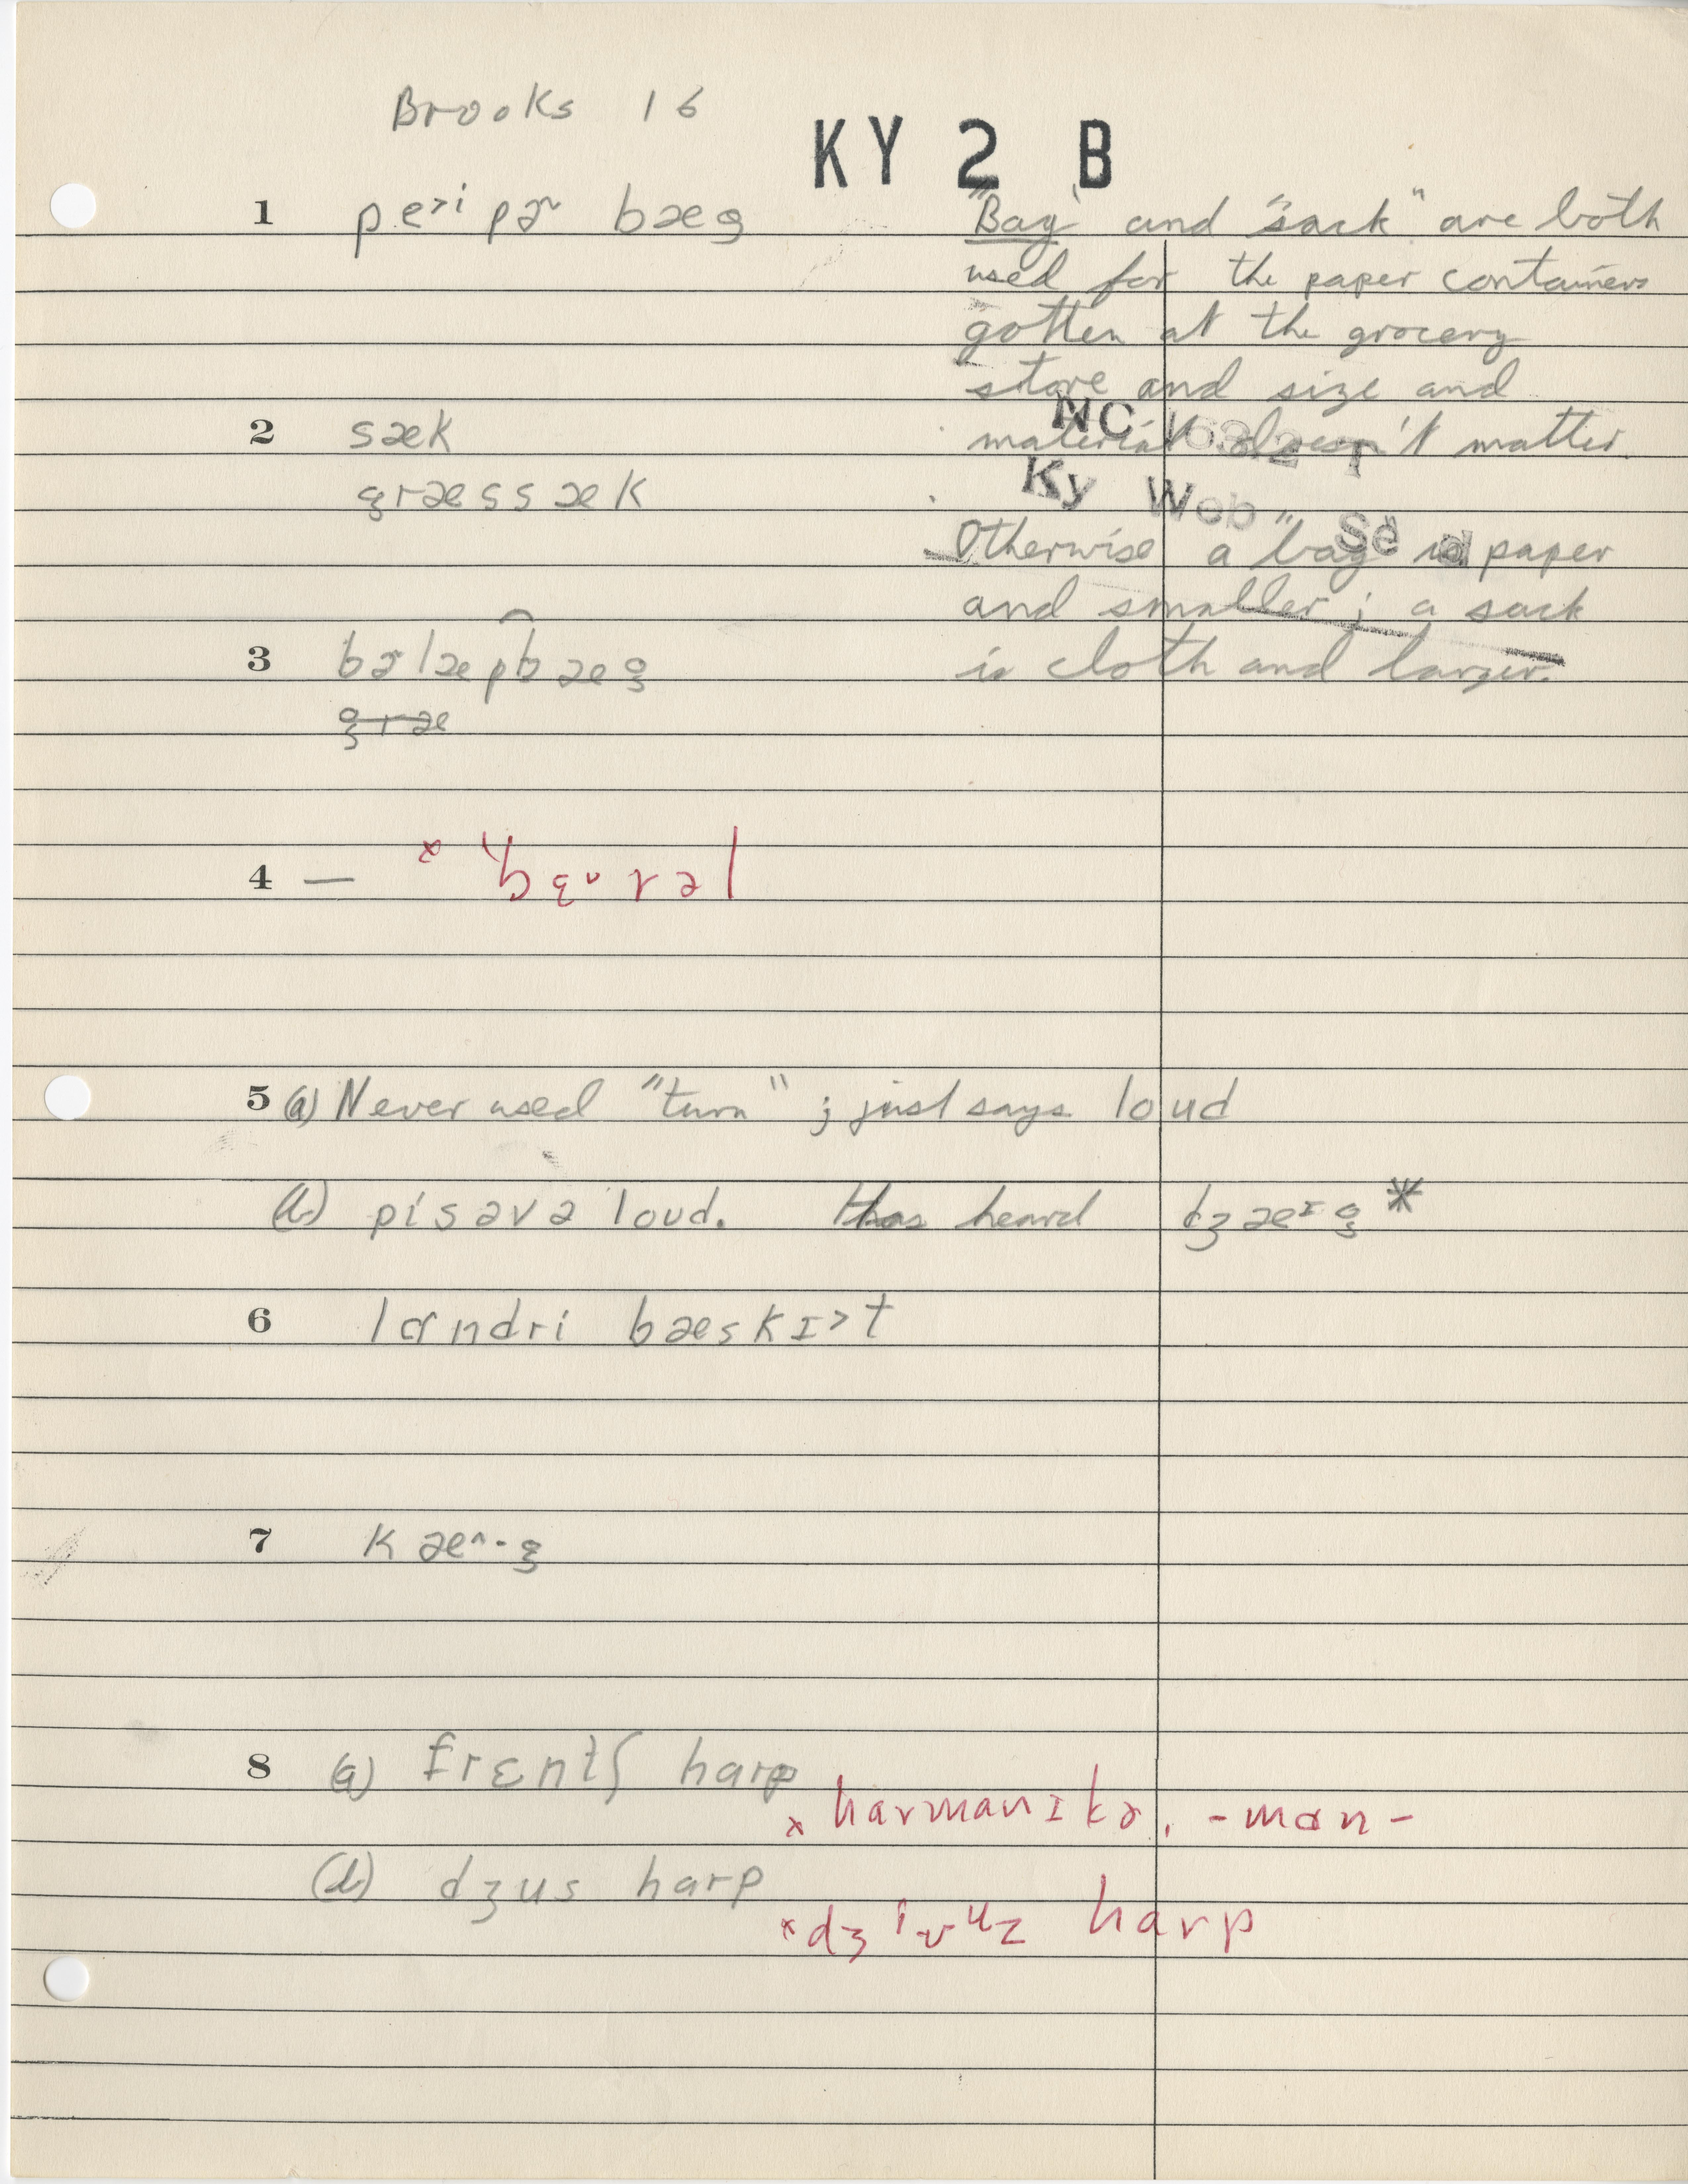 Brooks 16
KY 2 B
1 pe˃i pɚ bæg
"Bag" and "sack" are both
used for the paper containers
gotten at the grocery
store and size and
material doesn't matter.
NC 1
Ky Web
2 sæk
græssæk
Otherwise a "bag" is paper
and smaller; a sack
is cloth and larger.
3 bɚlæpbæg
græ
4 —
5 (a) Never used "turn"; just says loud
(b) pisəvə loud. Has heard dʒæɪg*
6 lɑndri bæskɪ˃t
7 kæ^·g
8 (a) frɛntʃ harp
x harmanɪkə, -mɑn-
(b) dʒus harp
harp